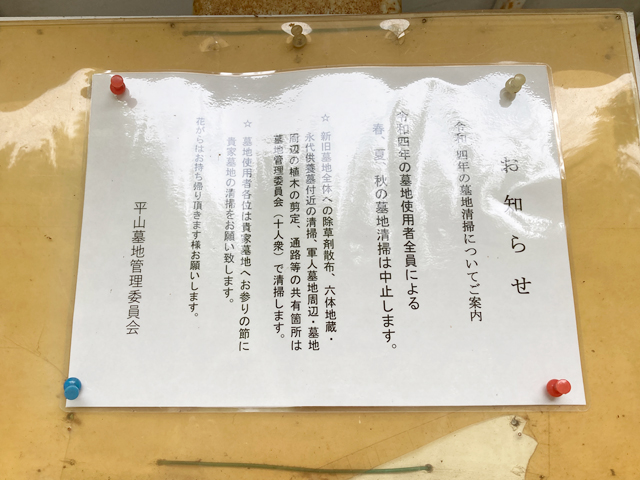 お知らせ
令和四年の墓地清掃についてご案内
令和四年の墓地使用者全員による
春、夏、秋の墓地清掃は中止します。
☆ 新旧墓地全体への除草剤散布、六体地蔵・
永代供養墓付近の清掃、軍人墓地周辺・墓地
周辺の植木の剪定、通路等の共有箇所は
墓地管理委員会（十人衆）で清掃します。
☆ 墓地使用者各位は貴家墓地へお参りの節に
貴家墓地の清掃をお願い致します。
花がらはお持ち帰り頂きます様お願いします。
平山墓地管理委員会